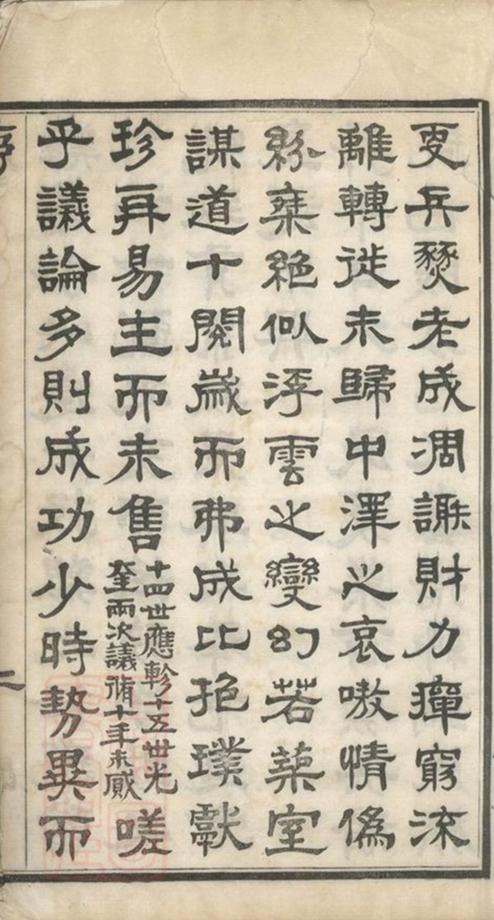 更兵燹老成凋謝財力殫窮流
離轉徙未歸中澤之哀嗷情僞
棼絕似浮雲之變幻若築室
謀道十閱歲而弗成比抱璞獻
珍再易主而未售十四世應軫十五世光奎兩次議脩十年未蕆嗟
乎議論多則成功少時勢異而
序